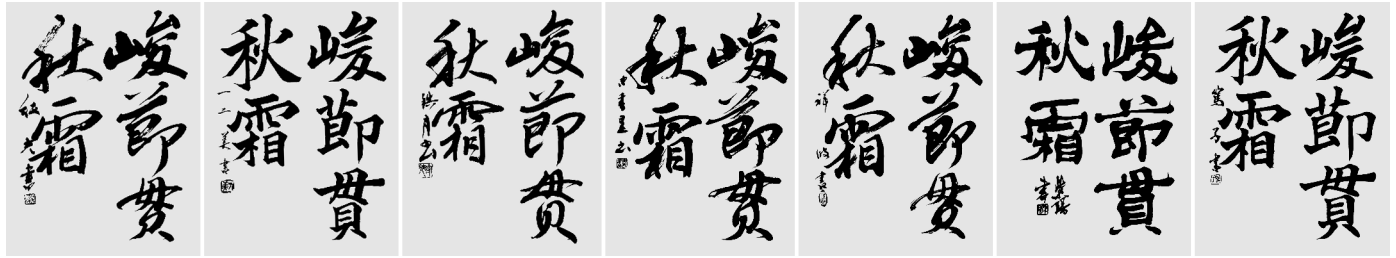 峻節貫
秋霜
峻節貫
秋霜
峻節貫
秋霜
峻節貫
秋霜
峻節貫
秋霜
峻節貫
秋霜
峻節貫
秋霜